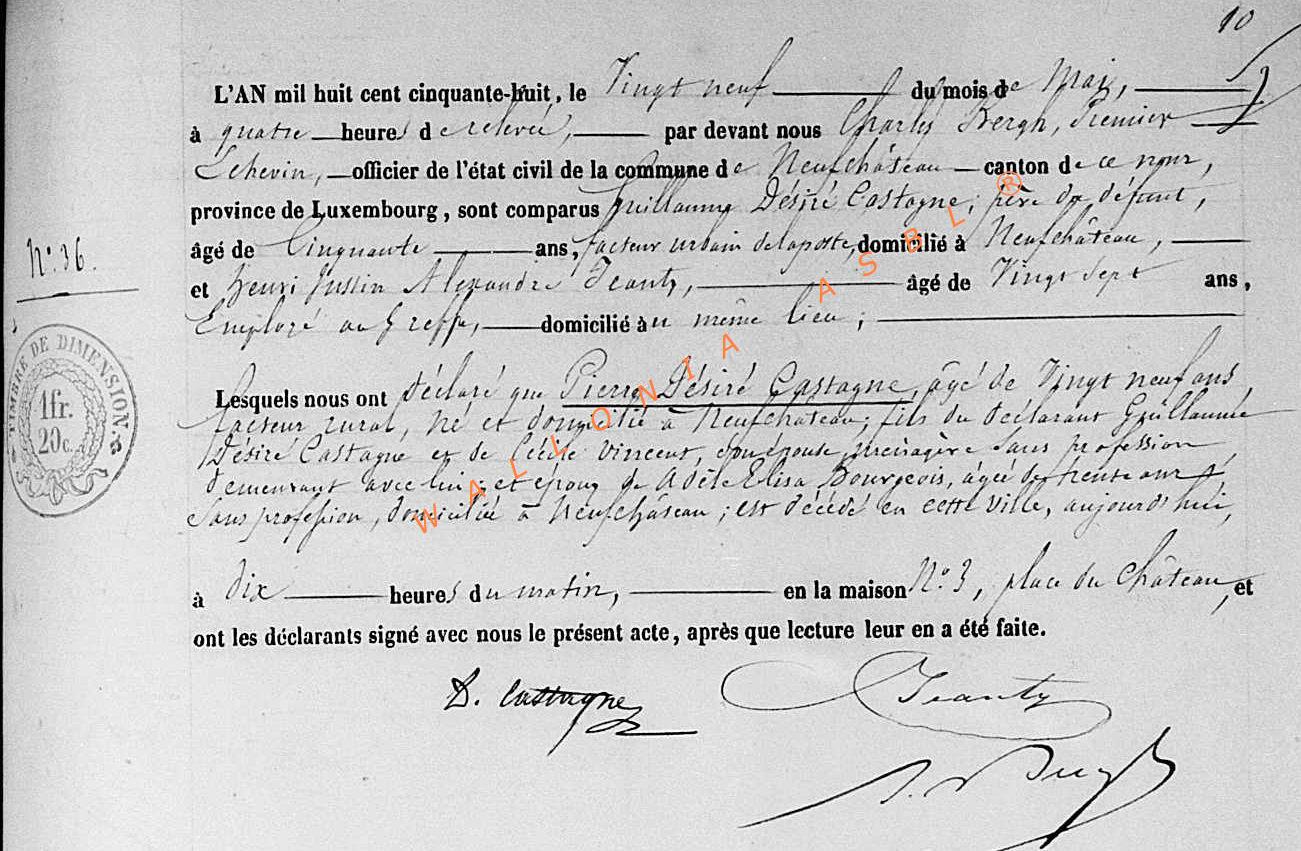 10
L'AN mil huit cent cinquante-huit, le Vingt neuf du mois de Mai,
à quatre heures de relevée, par devant nous Charles Bergh, Premier
Echevin, officier de l'état civil de la commune de Neufchâteau canton de ce nom,
province de Luxembourg, sont comparus Guillaume Désiré Castagne, père du défunt,
âgé de Cinquante ans, facteur urbain de la poste, domicilié à Neufchâteau,
N° 36.
et Henri Justin Alexandre Jeanty, âgé de Vingt sept ans,
Employé au Greffe, domicilié au même lieu;
TIMBRE DE DIMENSION
1fr.
20c.
Lesquels nous ont déclaré que Pierre Désiré Castagne, âgé de Vingt neuf ans,
facteur rural, né et domicilié à Neufchâteau, fils du déclarant Guillaume
Désiré Castagne et de Cécile Vincent, son épouse, ménagère sans profession
demeurant avec lui; et époux de Adèle Elisa Bourgeois, âgée de trente ans,
Sans profession, domiciliée à Neufchâteau; est décédé en cette Ville, aujourd'hui,
à dix heures du matin, en la maison N° 3, place du Château, et
ont les déclarants signé avec nous le présent acte, après que lecture leur en a été faite.
D. Castagne
Jeanty
WALLONIA ASBL ®